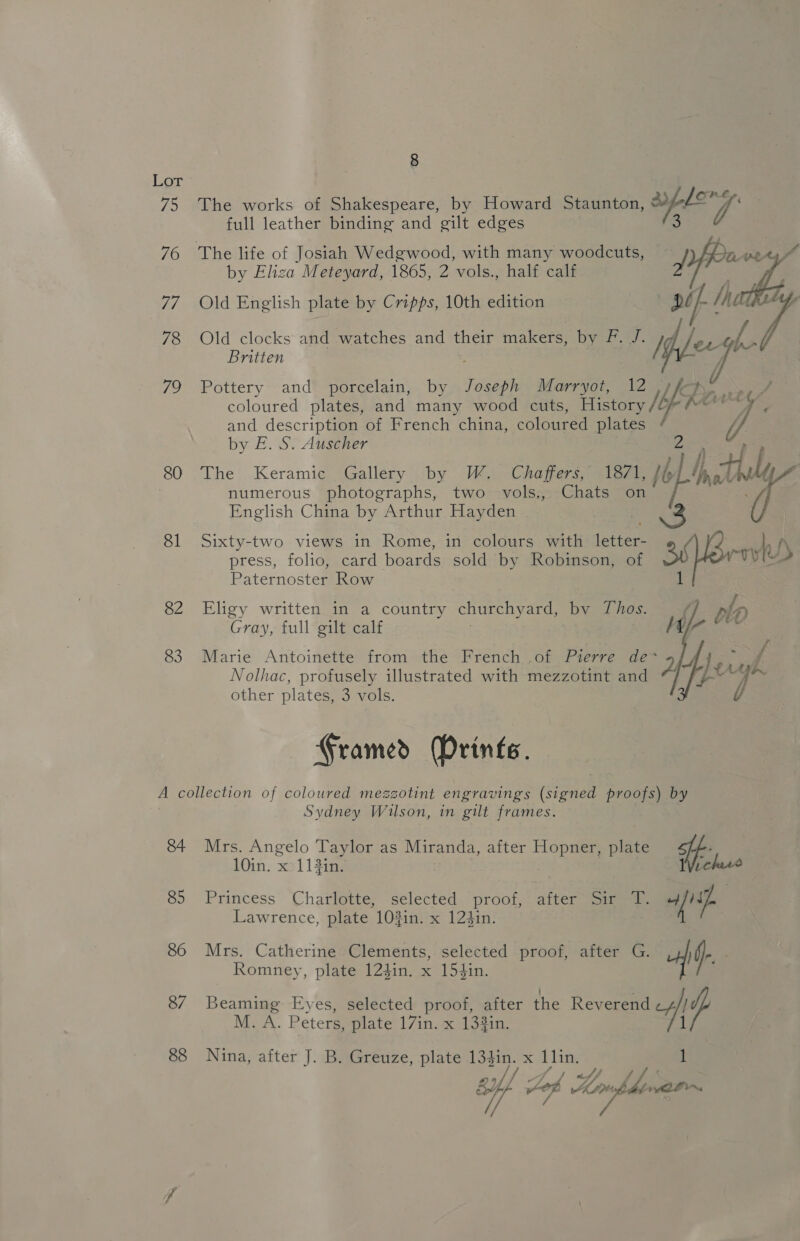 8
Lot
75 The works of Shakespeare, by Howard Staunton,
full leather binding and gilt edges 3
76 The life of Josiah Wedgwood, with many woodcuts,
by Eliza Meteyard, 1865, 2 vols., half calf 2
77 Old English plate by Cripps, 10th edition
78 Old clocks and watches and their makers, by F. J.
Britten
79 Pottery and porcelain, by Joseph Marryot, 12
coloured plates, and many wood cuts, History
and description of French china, coloured plates
by E. S. Auscher 2
80 The Keramic Gallery by W. Chaffers, 1871,
numerous photographs, two vols., Chats on
English China by Arthur Hayden 3
81 Sixty-two views in Rome, in colours with letter-
press, folio, card boards sold by Robinson, of
Paternoster Row 1
82 Eligy written in a country churchyard, by Thos.
Gray, full gilt calf
83 Marie Antoinette from the French of Pierre de
Nolhac, profusely illustrated with mezzotint and
other plates, 3 vols. 3
Framed Prints.
A collection of coloured mezzotint engravings (signed proofs) by
Sydney Wilson, in gilt frames.
84 Mrs. Angelo Taylor as Miranda, after Hopner, plate
10in. x 11¾in.
85 Princess Charlotte, selected proof, after Sir T.
Lawrence, plate 10¾in. x 12½in. 1
86 Mrs. Catherine Clements, selected proof, after G.
Romney, plate 12½in. x 15½in.
87 Beaming Eyes, selected proof, after the Reverend
M. A. Peters, plate 17in. x 13¾in. 1
88 Nina, after J. B. Greuze, plate 13½in. x 11in. 1